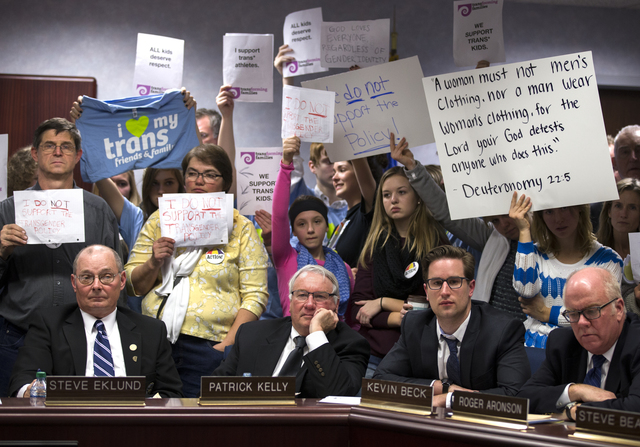 ALL kids
deserve
respect.
I support
trans*
athletes.
transforming families
GOD LOVES
EVERYONE
REGARDLESS
OF GENDER
WE
SUPPORT
TRANS*
KIDS.
i my
trans
friends & family
I DO NOT
SUPPORT the
TRANSGENDER
POLICY
I DO NOT
SUPPORT the
TRANSGENDER
POLICY
WE
SUPPORT
do not
support the
Policy!
"A woman must not men's
clothing, nor a man wear
womans clothing, for the
Lord your God detests
anyone who does this."
- Deuteronomy 22:5
STEVE EKLUND
PATRICK KELLY
KEVIN BECK
ROGER ARONSON
STEVE